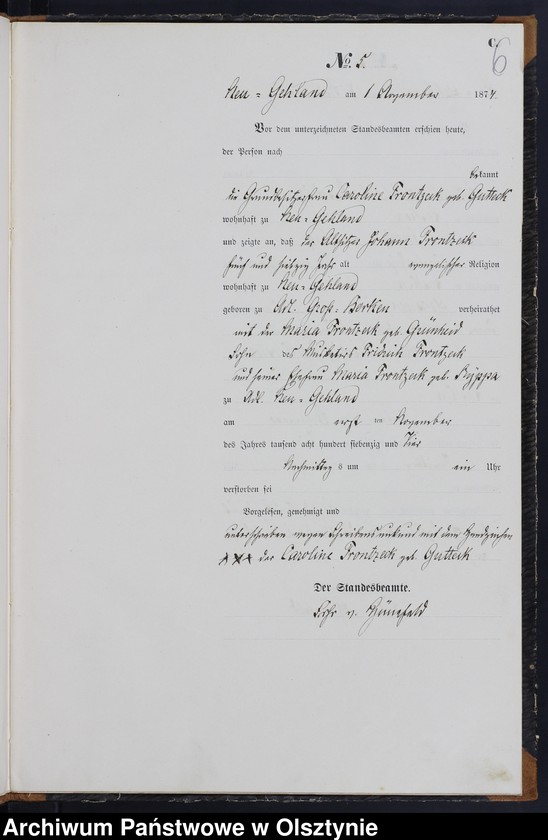 C.
6
No. 5.
Neu-Gehland am 1 November 1874.
Vor dem unterzeichneten Standesbeamten erschien heute,
der Person nach
bekannt
die Grundbesitzerfrau Caroline Trontzeck geb. Gutteck
wohnhaft zu Neu-Gehland
und zeigte an, daß der Altsitzer Johann Trontzeck
fünf und siebzig Jahr alt evangelischer Religion
wohnhaft zu Neu-Gehland
geboren zu Adl. Groß-Borken verheirathet
mit der Maria Trontzeck geb. Grünheid
Sohn des Musketirs Fridrich Trontzeck
und seiner Ehefrau Maria Trontzeck geb.
zu Adl. Neu-Gehland
am erst ten November
des Jahres tausend acht hundert siebenzig und Vier
Nachmittag s um ein Uhr
verstorben sei
Vorgelesen, genehmigt und
unterschrieben wegen Schreibensunkund mit dem Handzeichen
xxx der Caroline Trontzeck geb. Gutteck
Der Standesbeamte.
v. Hünefeld
Archiwum Państwowe w Olsztynie